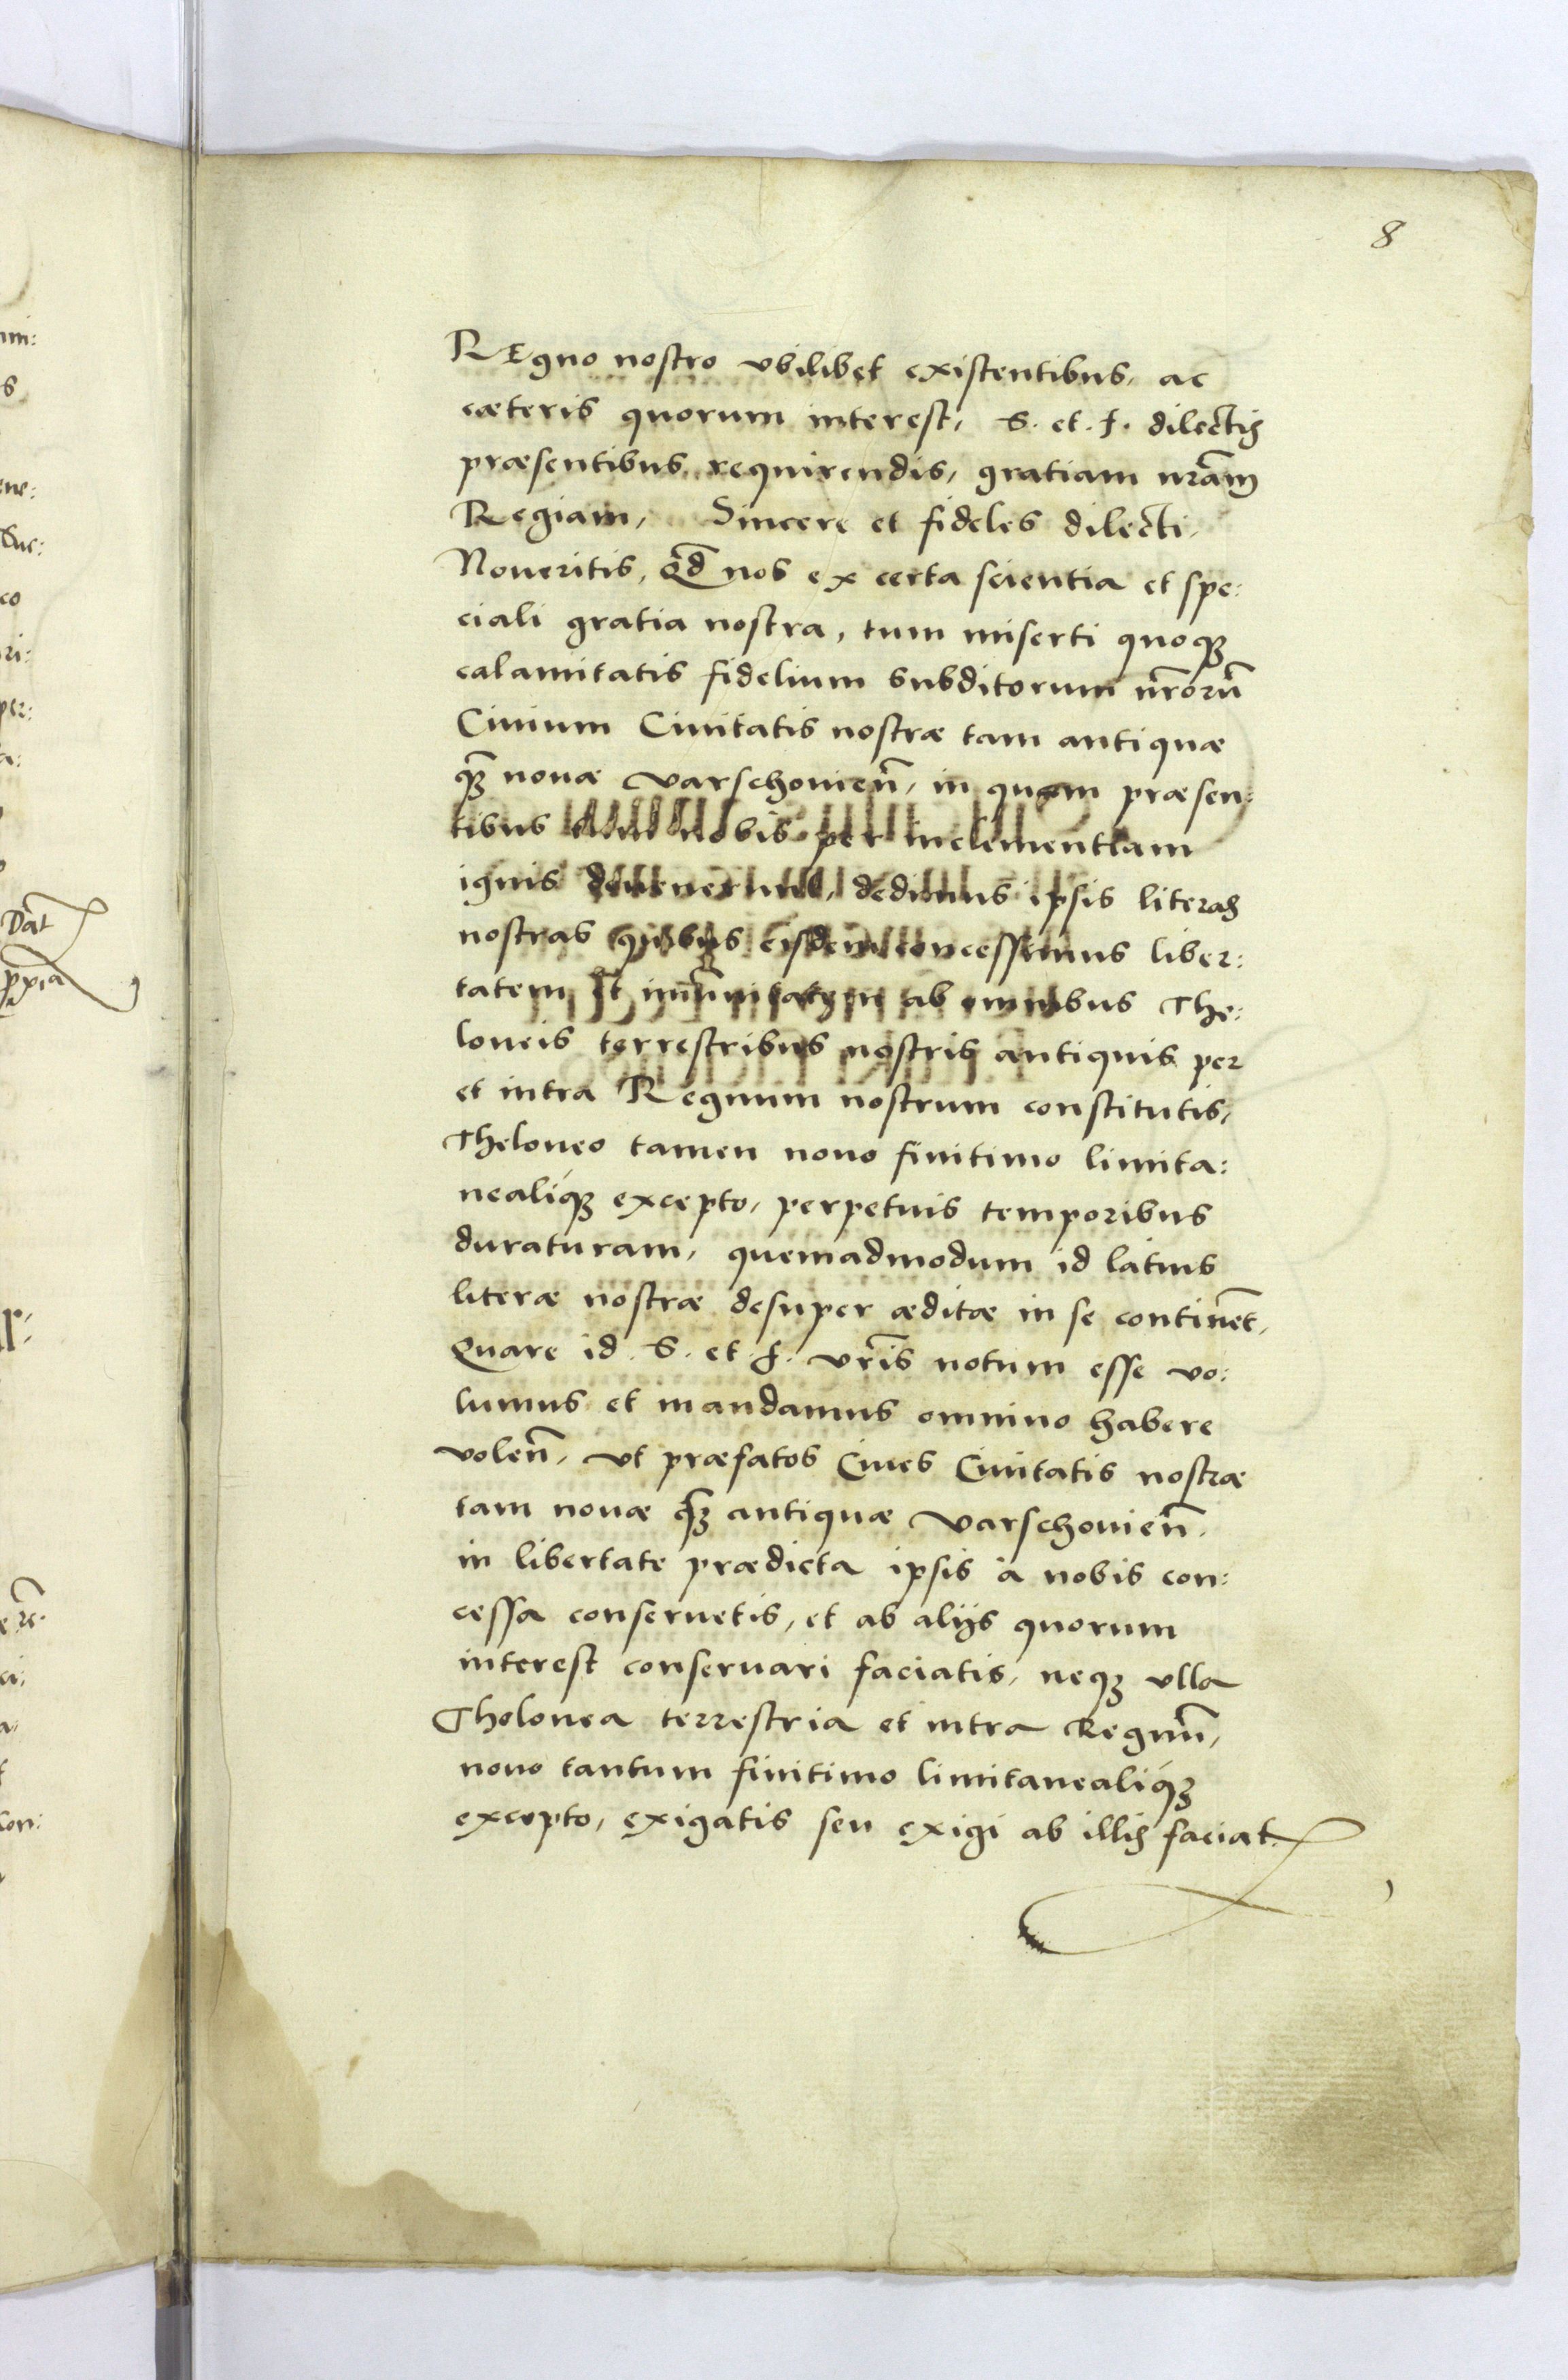 8
REgno nostro vbilibet existentibus, ac
cæteris quorum interest, S. et. f. dilectis
præsentibus requirendis, gratiam nr̃am
Regiam, Sincere et fideles dilecti,
Noueritis, Qd̃ nos ex certa scientia et spe:
ciali gratia nostra, tum miserti quoqꝫ
calamitatis fidelium subditorum nr̃orũ
Ciuium Ciuitatis nostræ tam antiquæ
qꝫ̃ nouæ Varschouieñ, in quam præsen:
tibus nobis per inclementiam
ignis deuenerunt, dedimus ipsis literas
nostras quibus eisdem concessimus liber:
tatem et imũnitatem ab omnibus The:
loneis terrestribus nostris antiquis per
et intra Regnum nostrum constitutis,
Theloneo tamen nouo finitimo limita:
nealiqꝫ excepto, perpetuis temporibus
duraturam, quemadmodum id latius
literæ nostræ desuper æditæ in se contineñt,
Quare id S. et. f. vr̃is notum esse vo:
lumus et mandamus omnino habere
voleñ, vt præfatos Ciues Ciuitatis nostræ
tam nouæ qꝫ̃ antiquæ Varschouieñ,
in libertate prædicta ipsis à nobis con:
cessa conseruetis, et ab alijs quorum
interest conseruari faciatis, neqꝫ vlla
Thelonea terrestria et intra Regnũ,
nouo tantum finitimo limitanealiqꝫ
excepto, exigatis seu exigi ab illis faciat: